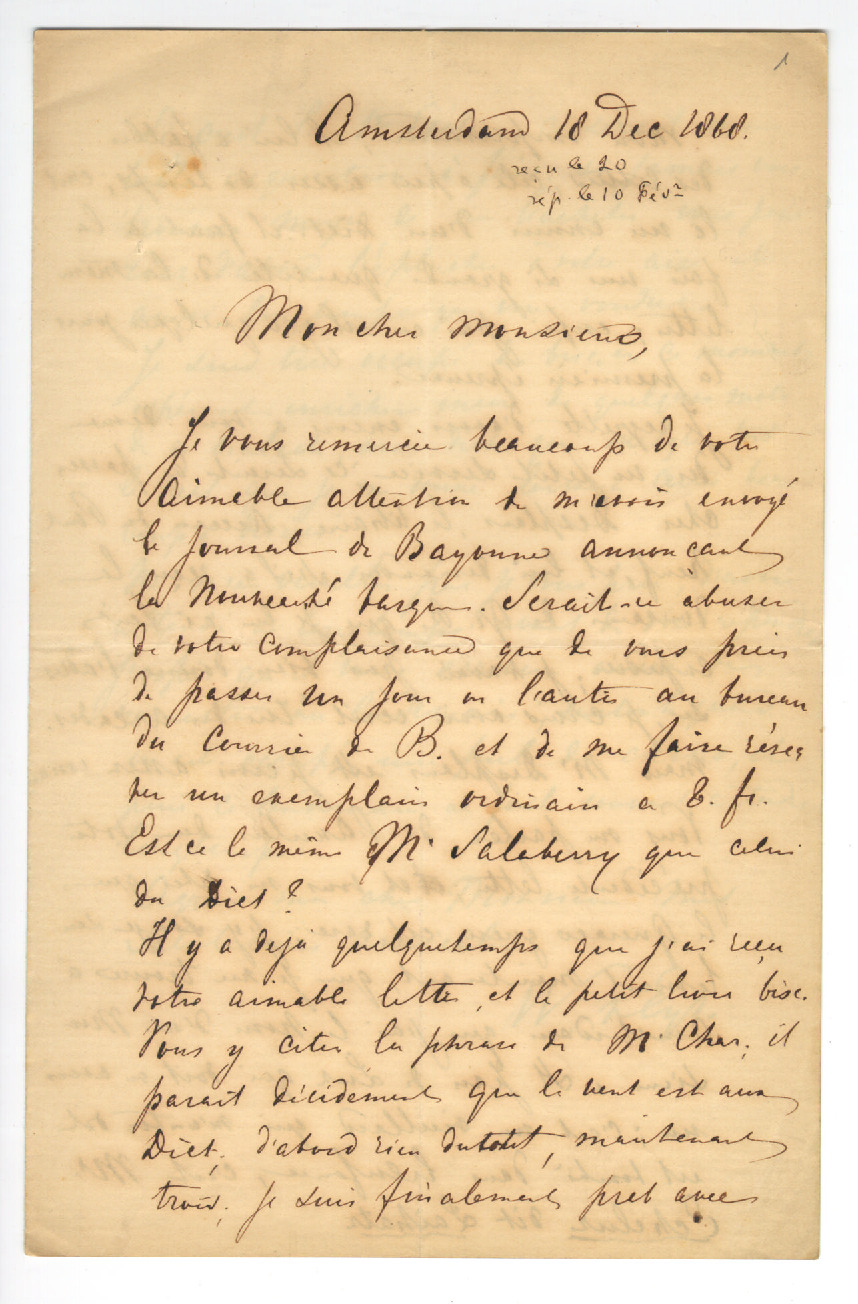 1
Amsterdam 18 Dec 1868.
reçu le 20
rép. le 10 Févr
Mon cher monsieur,
Je vous remercie beaucoup de votre
aimable attention de m'avoir envoyé
le Journal de Bayonne annoncant
la Nouveauté basque. Serait-ce abuser
de votre complaisance que de vous prier
de passer un jour ou l'autre au bureau
du Courrier de B. et de me faire réser
ver un exemplaire ordinaire a 6. fr.
Est ce le même Mr Salaberry que celui
du Dict?
Il y a dejà quelquetemps que j'ai reçu
votre aimable lettre, et le petit livre bisc.
Vous y citez la phrase de Mr Char; il
parait décidément que le vent est aux
Dict; d'abord rien du tout, maintenant
trois; je suis finalement pret avec